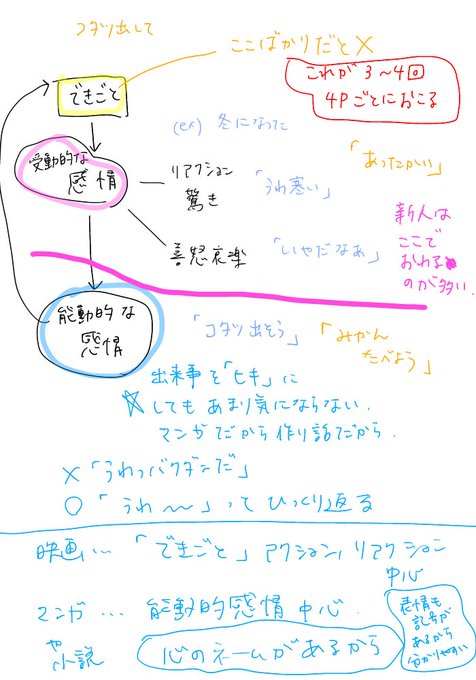 コタツ出して
ここばかりだと×
できごと
これが3〜4回
4Pごとにおこる
(ex) 冬になった
受動的な
感情
リアクション
驚き
「うわ寒い」
「あったかい」
喜怒哀楽
「いやだなぁ」
新人は
ここで
おわる
のが多い。
能動的な
感情
「コタツ出そう」
「みかん
たべよう」
出来事を「ヒキ」に
☆してもあまり気にならない。
マンガだから作り話だから。
×「うわっバクダンだ」
○「うわ〜」ってひっくり返る
映画…「できごと」アクション,リアクション
中心
マンガ…能動的感情中心.
や
小説
心のネームがあるから
表情も
記号が
あるから
分かりやすい